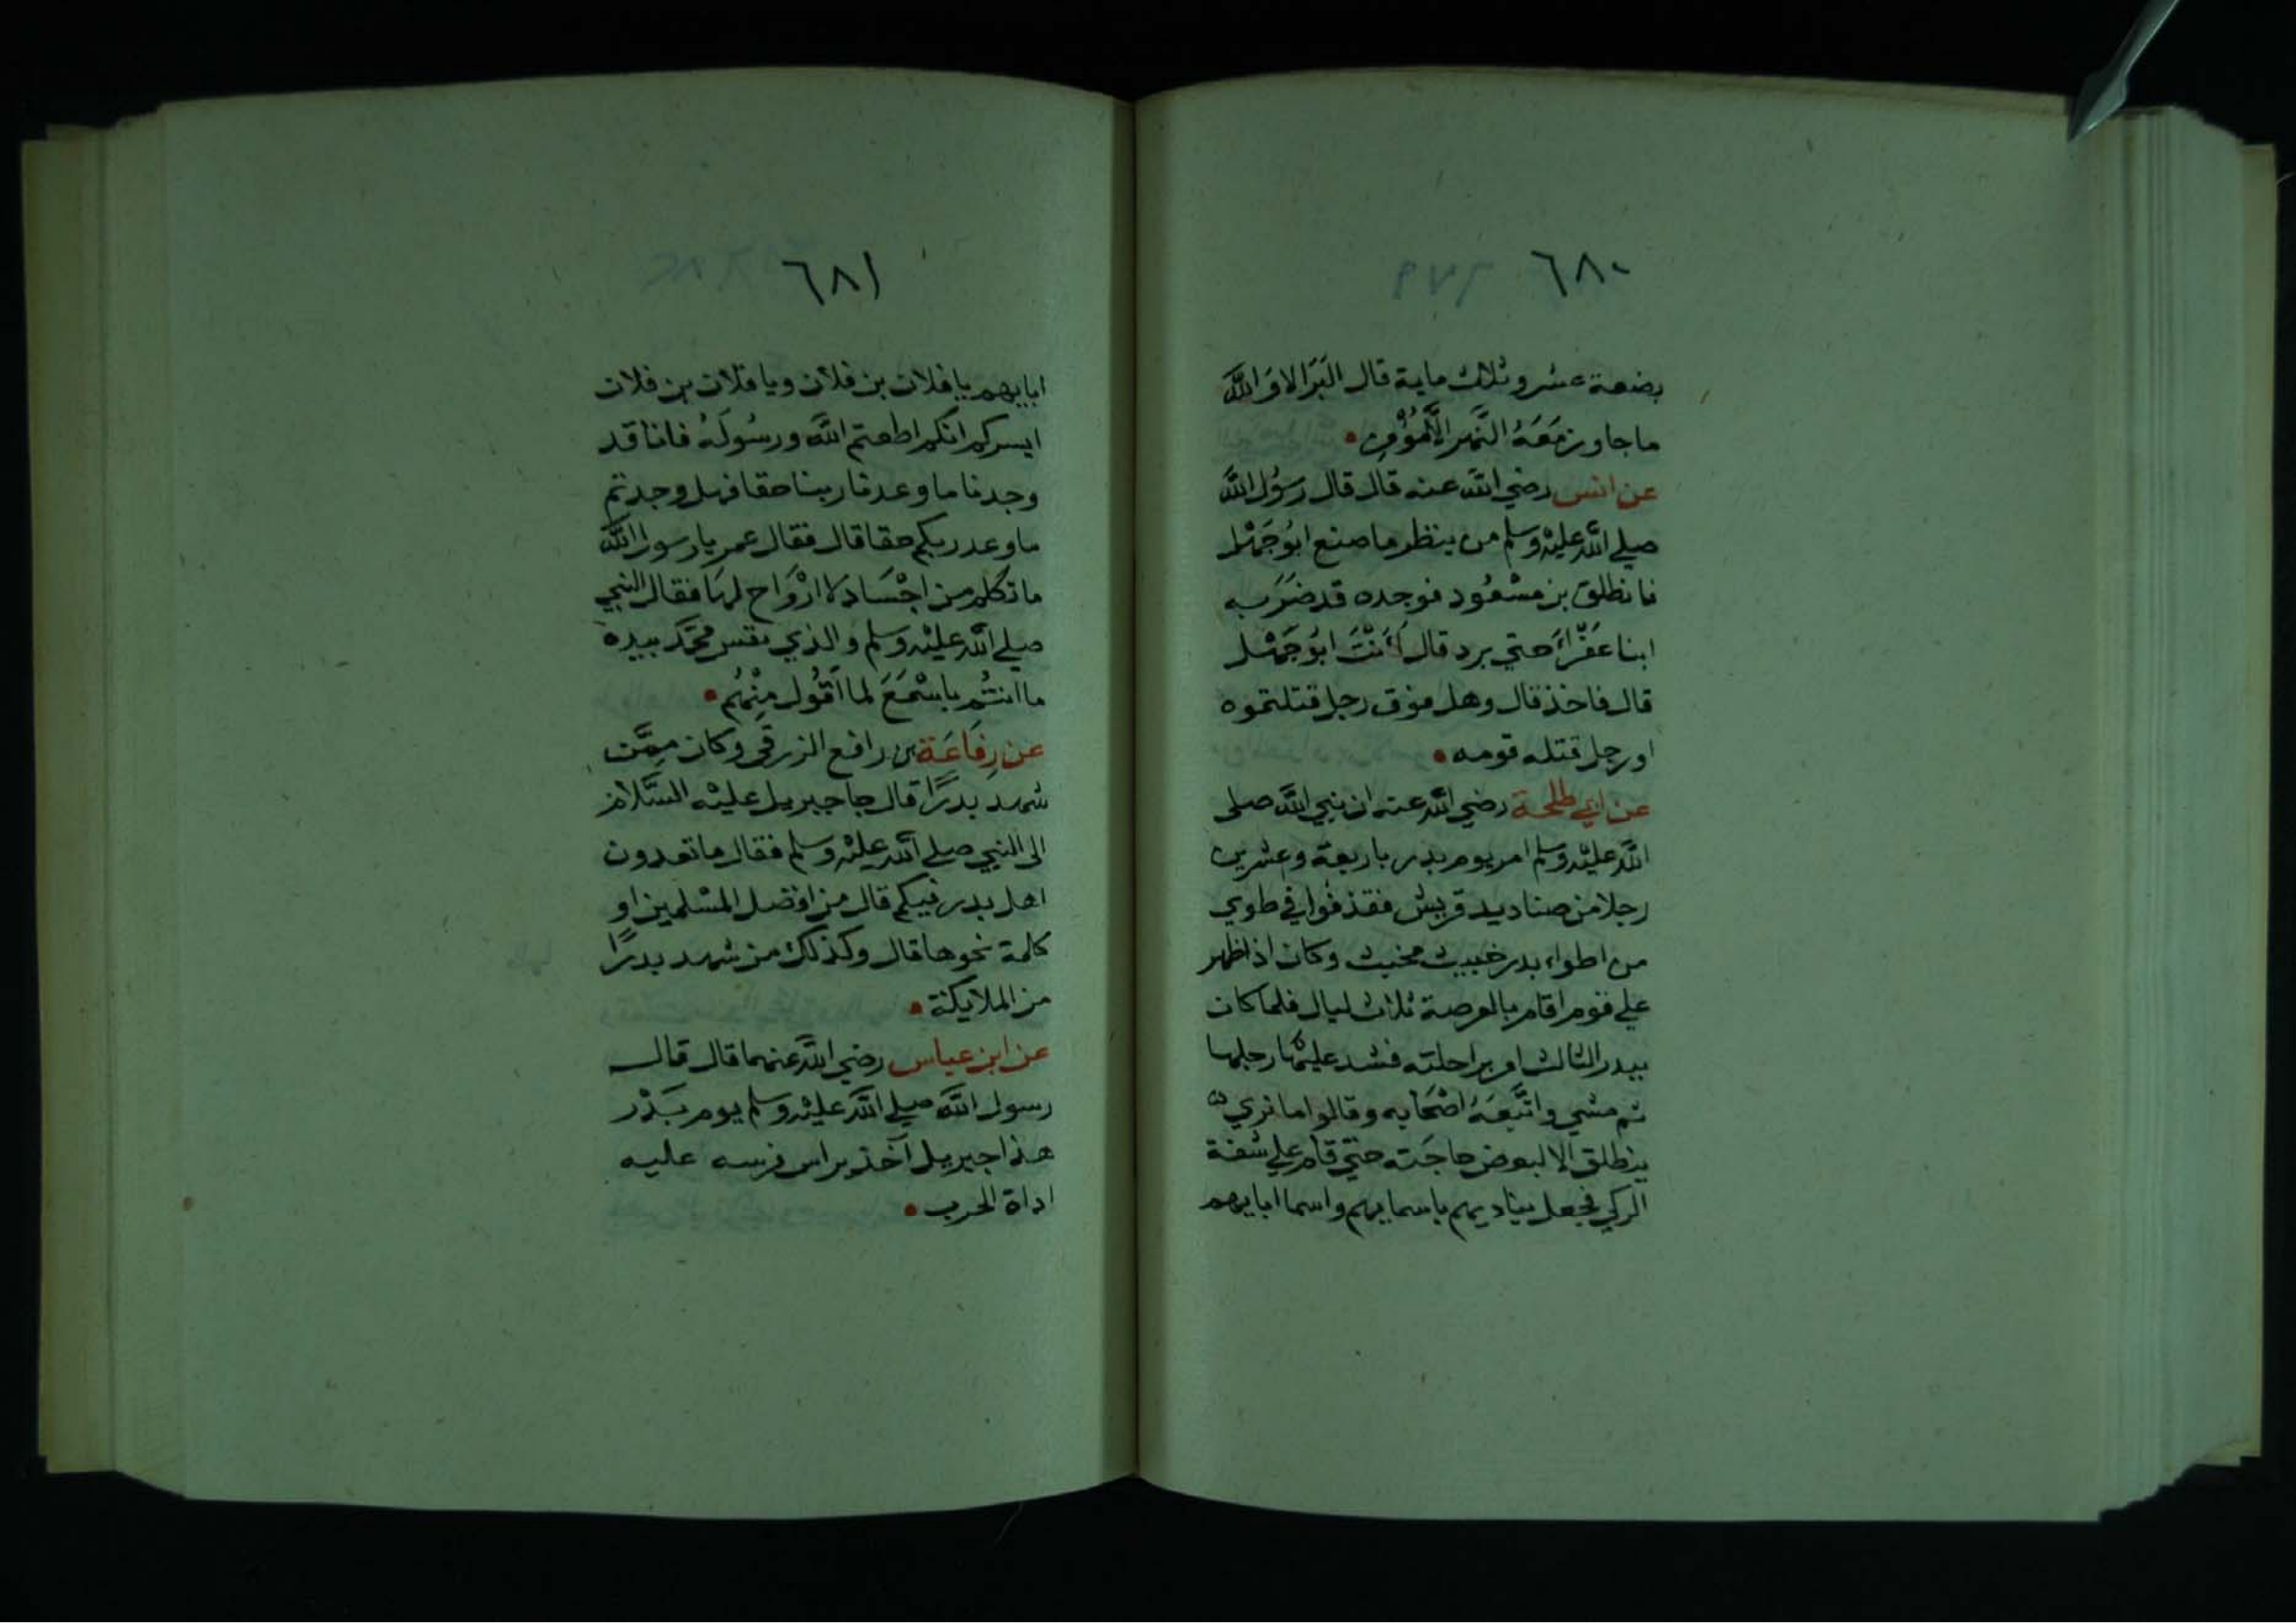 ٦٨٠
بضعة عشر وثلاث ماية قال البَرَا لا وَاللَّه
ما جاوز مَعَهُ النَّهر الَّا مُؤْمِن
عن انس رضي الله عنه قال قال رسُول الله
صلي الله عليْه وسلم من ينظر ما صنع ابُو جَهْل
فانطلق بن مسْعُود فوجده قد ضَرَبه
ابنا عَفْرَاَء حتي برد قال أَأَنْتَ ابُو جَهْل
قال فاخذ قال وهل فوق رجل قتلتموه
او رجل قتله قومه
عن ابي طلحة رضي الله عنه ان نبي الله صلى
الله عليْه وسلم امر يوم بدر باربعة وعشرين
رجلا من صناديد قريش فقذفُوا في طوي
من اطواء بدر خبيث مخبث وكان اذا ظهر
علي قوم اقام بالعرصة ثلاث ليال فلما كان
ببدر الثالث امر براحلته فشد عليْها رحلها
ثم مشي واتَّبعَهُ اصْحَابه وقالوا ما نري
ينطلق الا لبعض حاجَته حتيّ قام علي شفة
الركي فجعل يناديهم باسمايهم واسما ابايهم
٦٨١
ابايهم يا فلان بن فلان ويا فلان بن فلان
ايسركم انكم اطعتم الله ورسُولَهُ فانا قد
وجدنا ما وعدنا ربنا حقا فهل وجدتم
ما وعد ربكم حقا قال فقال عمر يا رسول الله
ما تكلم من اجْسَاد لا ارْوَاح لهَا فقال النبي
صلي الله عليْه وسلم والذي نفس محَمَّد بيده
ما انتُم باسْمَعَ لما اَقُول مِنْهُم
عن رِفَاعَة بن رافع الزرقي وكان مِمَّن
شهد بدرًا قال جا جبريل عليْه السَّلام
الى النبي صلي الله عليْه وسلم فقال ما تعدون
اهل بدر فيكم قال من افضل المسْلمين او
كلمة نحوها قال وكذلك من شهد بدرًا
من الملايكة
عن ابن عباس رضي الله عنهما قال قال
رسول الله صلي الله عليْه وسلم يوم بَدْر
هذا جبريل آخذ براس فرسه عليه
اداة الحرب